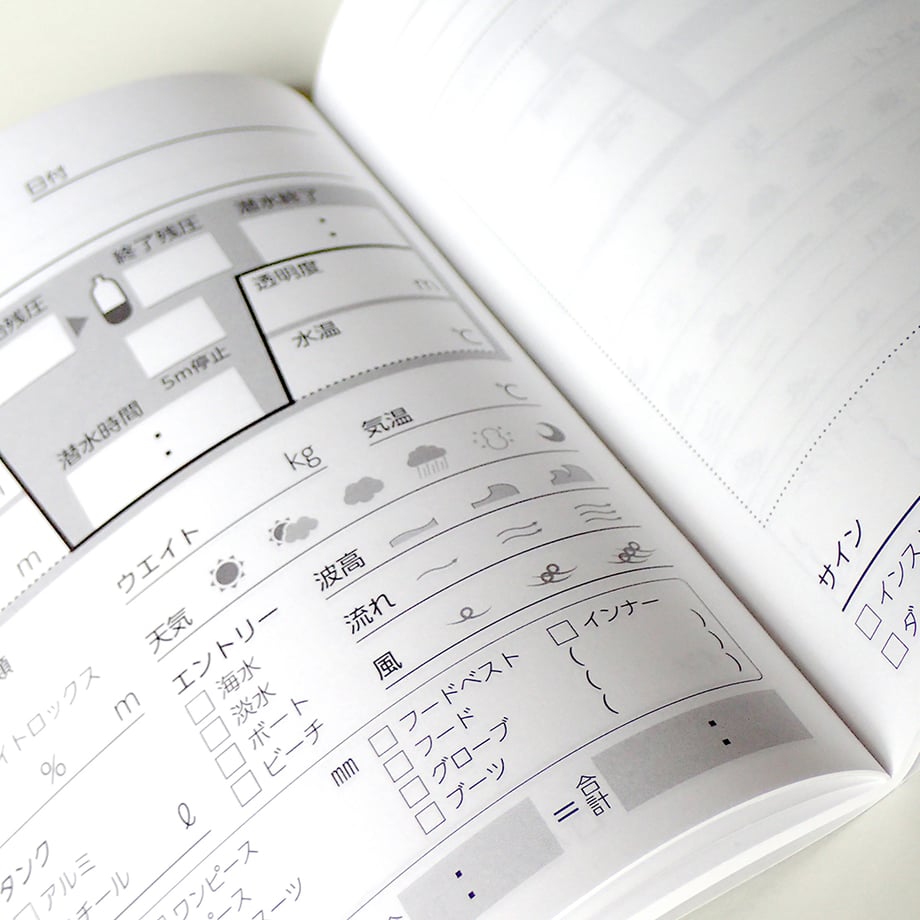 日付
潜水終了
:
終了残圧
残圧
透明度
m
5m停止
水温
℃
潜水時間
:
気温
℃
kg
ウエイト
m
天気
波高
流れ
風
エントリー
海水
淡水
ボート
ビーチ
m
%
mm
フードベスト
フード
グローブ
ブーツ
インナー
ℓ
タンク
アルミ
チール
ワンピース
ピース
スーツ
:
=
合計
:
サイン
インス
ダ